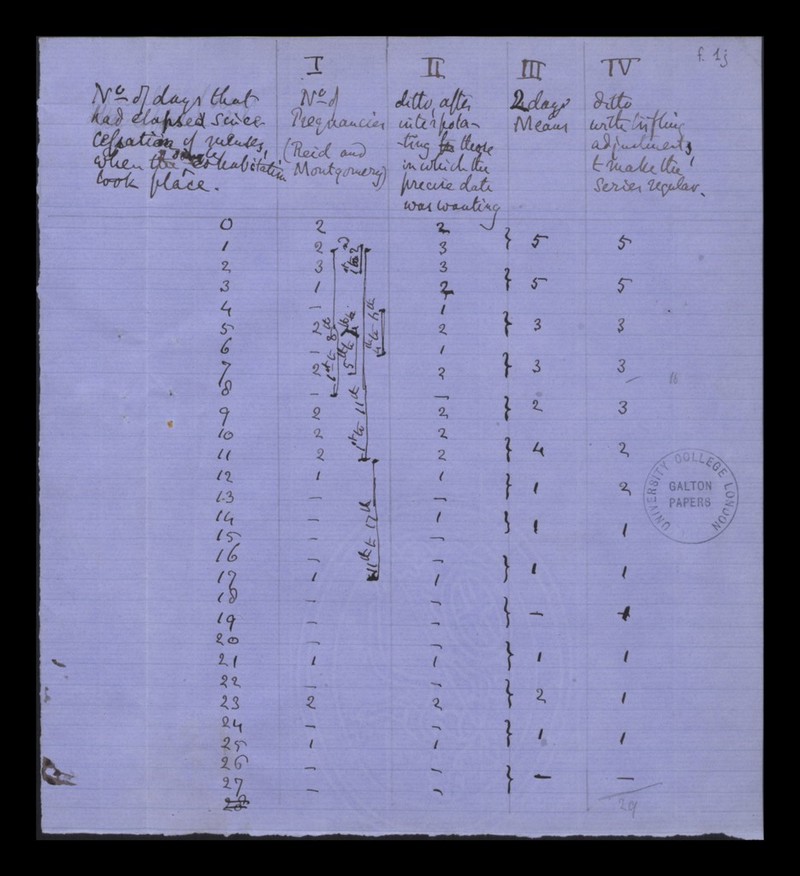 f. 1j
I II III IV
No of days that had elapsed since cessation of menses, when cohabitation took place.
No of Pregnancies (Reid and Montgomery)
ditto, after interpolating those in which the precise date was wanting
2 days Means
ditto with trifling adjustments, to make the series regular.
0 2 2
1 2 3 } 5 5
2 3 3
3 1 2 } 5 5
4 – 1
5 2 2 } 3 3
6 – 1
7 2 2 } 3 3
8 – –
9 2 2 } 2 3
10 2 2
11 2 2 } 4 2
12 1 1
13 – – } 1 2
14 – 1
15 – – } 1 1
16 – –
17 1 1 } 1 1
18 – –
19 – – } –
20 – –
21 1 1 } 1 1
22 – –
23 2 2 } 2 1
24 – –
25 1 1 } 1 1
26 – –
27 – – } – –
28
29
1st to 2nd
1st to 8th
5th to
4th to 6th
1st to 11th
11th to 17th
16
UNIVERSITY COLLEGE LONDON
GALTON
PAPERS